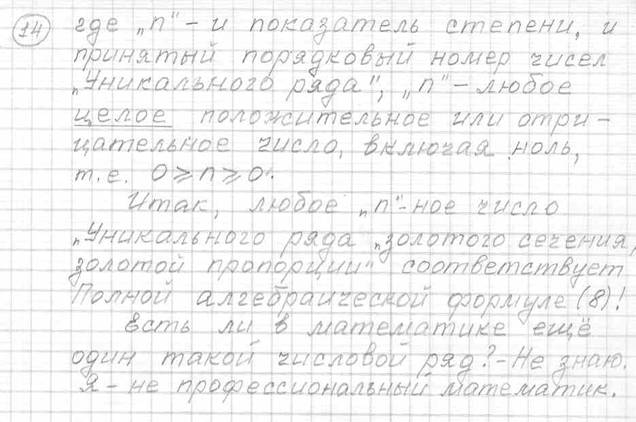 14 где „п" - и показатель степени, и
принятый порядковый номер чисел
„Уникального ряда", „п" - любое
целое положительное или отри-
цательное число, включая ноль,
т.е. 0⩾п⩾0.
Итак, любое „п"-ное число
„Уникального ряда „золотого сечения,
золотой пропорции" соответствует
Полной алгебраической формуле (8)!
Есть ли в математике ещё
один такой числовой ряд? - Не знаю.
Я - не профессиональный математик.